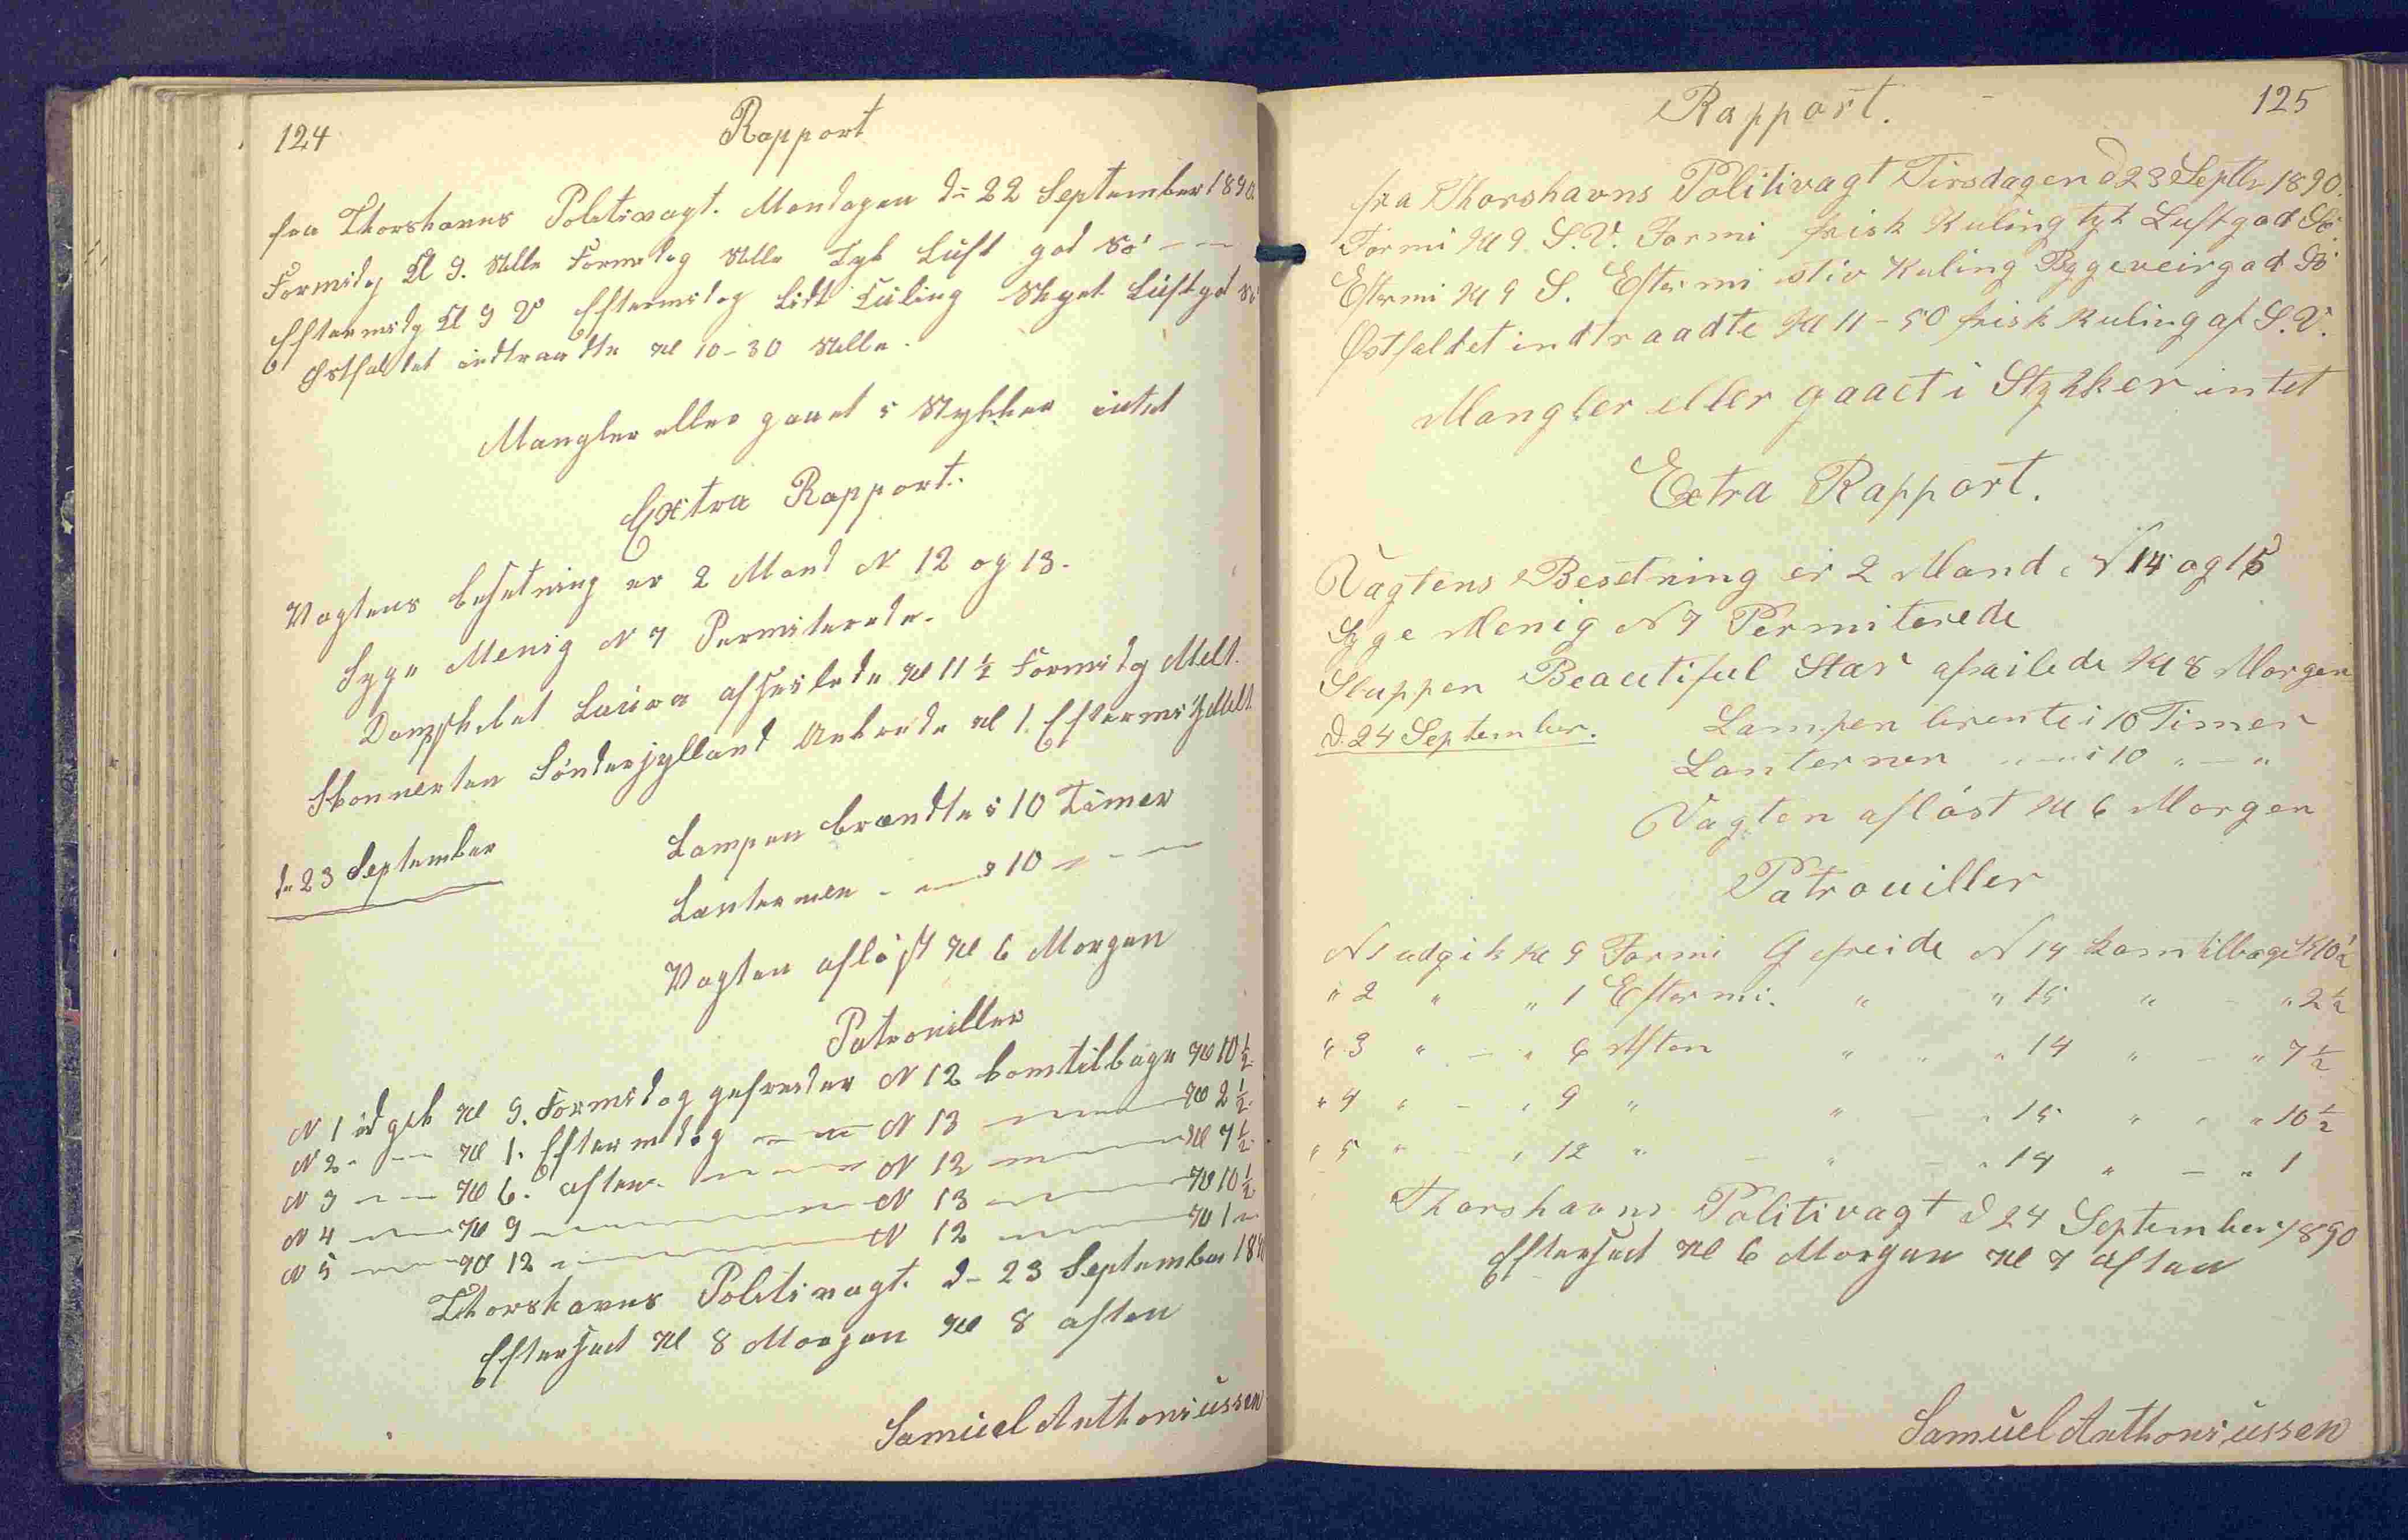 124
Rapport
fra Thorshavns Politivagt. Mandagen d= 22 September 1890
Formidg Kl 9. Stille Formidag Stille Tyk Luft god Sö
Eftermidg Kl 9 V Eftermidag Lidt Kuling Skyet Luft god Sö
Østfaldet indtraadte Kl 10-30 Stille.
Mangler eller gaaet i Stykker intet
Extra Rapport.
Vagtens besetning er 2 Mand N 12 og 13.
Syge Menig N 7 Permiterede.
Dampskibet Laura afseilede Kl 11 ½ Formidg Meldt.
Skonnerten Sönderjylland Ankrede Kl 1. Eftermidg Meldt
d= 23 September
Lampen brændte i 10 Timer
Lanternen - — i 10 — — —
Vagten aflöst Kl 6 Morgen
Patrouiller
N 1 udgik Kl 9. Formidag gefreider N 12 kom tilbage Kl 10 ½
N 2 - — Kl 1. Eftermidag — — N 13 — Kl 2 ½
N 3 — — Kl 6. aften — — N 12 — Kl 7 ½
N 4 — Kl 9 — N 13 — Kl 10 ½
N 5 — Kl 12 — N 12 — Kl 1 —
Thorshavns Politivagt. d- 23 September 1890
Efterseet Kl 8 Morgen Kl 8 aften
Samuel Anthoniussen
125
Rapport.
fra Thorshavns Politivagt Tirsdagen d 23 Septbr 1890.
Formi Kl 9. S.V. Formi frisk Kuling tyk Luft god Sö
Eftermi Kl 9 S. Eftermi stiv Kuling Byge veir god Sö
Østfaldet indtraadte Kl 11-50 frisk Kuling af S.V.
Mangler eller gaaet i Stykker intet
Extra Rapport.
Vagtens Besetning er 2 Mand N 14 og 15
Syge Menig N 7 Permiterede
Sluppen Beautiful Star afsailede Kl 8 Morgen
d. 24 September.
Lampen brente i 10 Timer
Lanternen " — i 10 " — "
Vagten aflöst Kl 6 Morgen
Patrouiller
N 1 udgik Kl 9 Formi Gefreide N 14 kom tilbage Kl 10 ½
" 2 " " 1 Eftermi. " " 15 " - " 2 ½
" 3 " - " 6 Aften " " " 14 " - " 7 ½
" 4 " - " 9 " " - " 15 " " " 10 ½
" 5 " - " 12 " - " - " 14 " - " 1
Thorshavns Politivagt d 24 September 1890
Efterseet Kl 6 Morgen Kl 7 aften
Samuel Anthoniussen